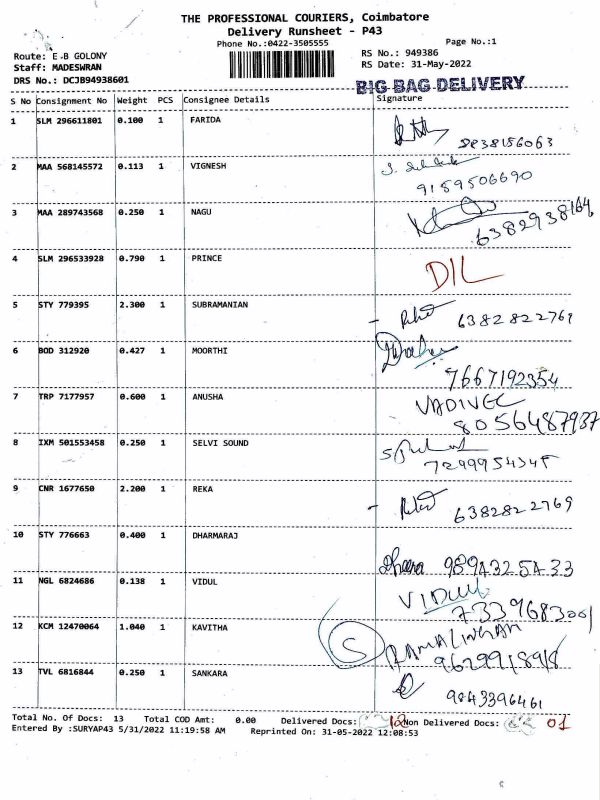 THE PROFESSIONAL COURIERS, Coimbatore
Delivery Runsheet - P43
Phone No.:0422-3505555
Page No.:1
Route: E-B GOLONY
RS No.: 949386
Staff: MADESWRAN
RS Date: 31-May-2022
DRS No.: DCJB94938601
BIG BAG DELIVERY
S No Consignment No Weight PCS Consignee Details Signature
1 SLM 296611801 0.100 1 FARIDA
2 MAA 568145572 0.113 1 VIGNESH
9159506690
3 MAA 289743568 0.250 1 NAGU
6382938164
4 SLM 296533928 0.790 1 PRINCE
DIL
5 STY 779395 2.300 1 SUBRAMANIAN
6382822769
6 BOD 312920 0.427 1 MOORTHI
7667192354
7 TRP 7177957 0.600 1 ANUSHA
VADIVEL
8056487937
8 IXM 501553458 0.250 1 SELVI SOUND
9 CNR 1677650 2.200 1 REKA
6382822769
10 STY 776663 0.400 1 DHARMARAJ
9894325433
11 NGL 6824686 0.138 1 VIDUL
VIDUL
7339683001
12 KCM 12470064 1.040 1 KAVITHA
S RAMALINGAM
9629918918
13 TVL 6816844 0.250 1 SANKARA
9843396461
Total No. Of Docs: 13 Total COD Amt: 0.00 Delivered Docs: 12 Non Delivered Docs: 01
Entered By :SURYAP43 5/31/2022 11:19:58 AM Reprinted On: 31-05-2022 12:08:53